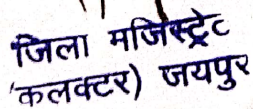 जिला मजिस्ट्रेट
'कलक्टर) जयपुर